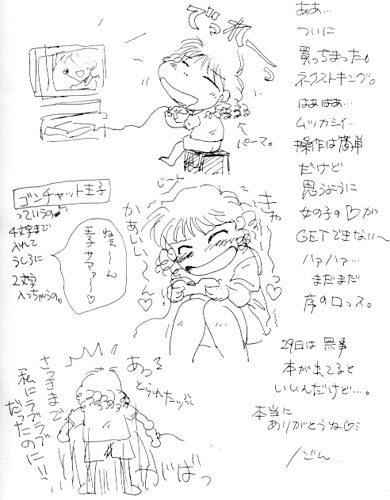 でっれ〜っ
パーマ。
ああ…
ついに
買っちまった。
ネクストキング。
はぁはぁ…
ムツカシイ…
操作は簡単
だけど
思うように
女の子の♡が
GETできない〜
ハァハァ…
まだまだ
序の口っス。
ゴンチャット王子
っていうの♪
4文字まで
入れて
うしろに
2文字
入っちゃうの。
ねぇ〜ん
王子サマァ〜♡
じーん
きゃー
かあいい〜ん♡
あっっ
とられたッッ
さっきまで
私にラブラブ
だったのに!!
がばっ
29日は無事
本が出てると
いいんだけど…。
本当に
ありがとうね♡
/ごん